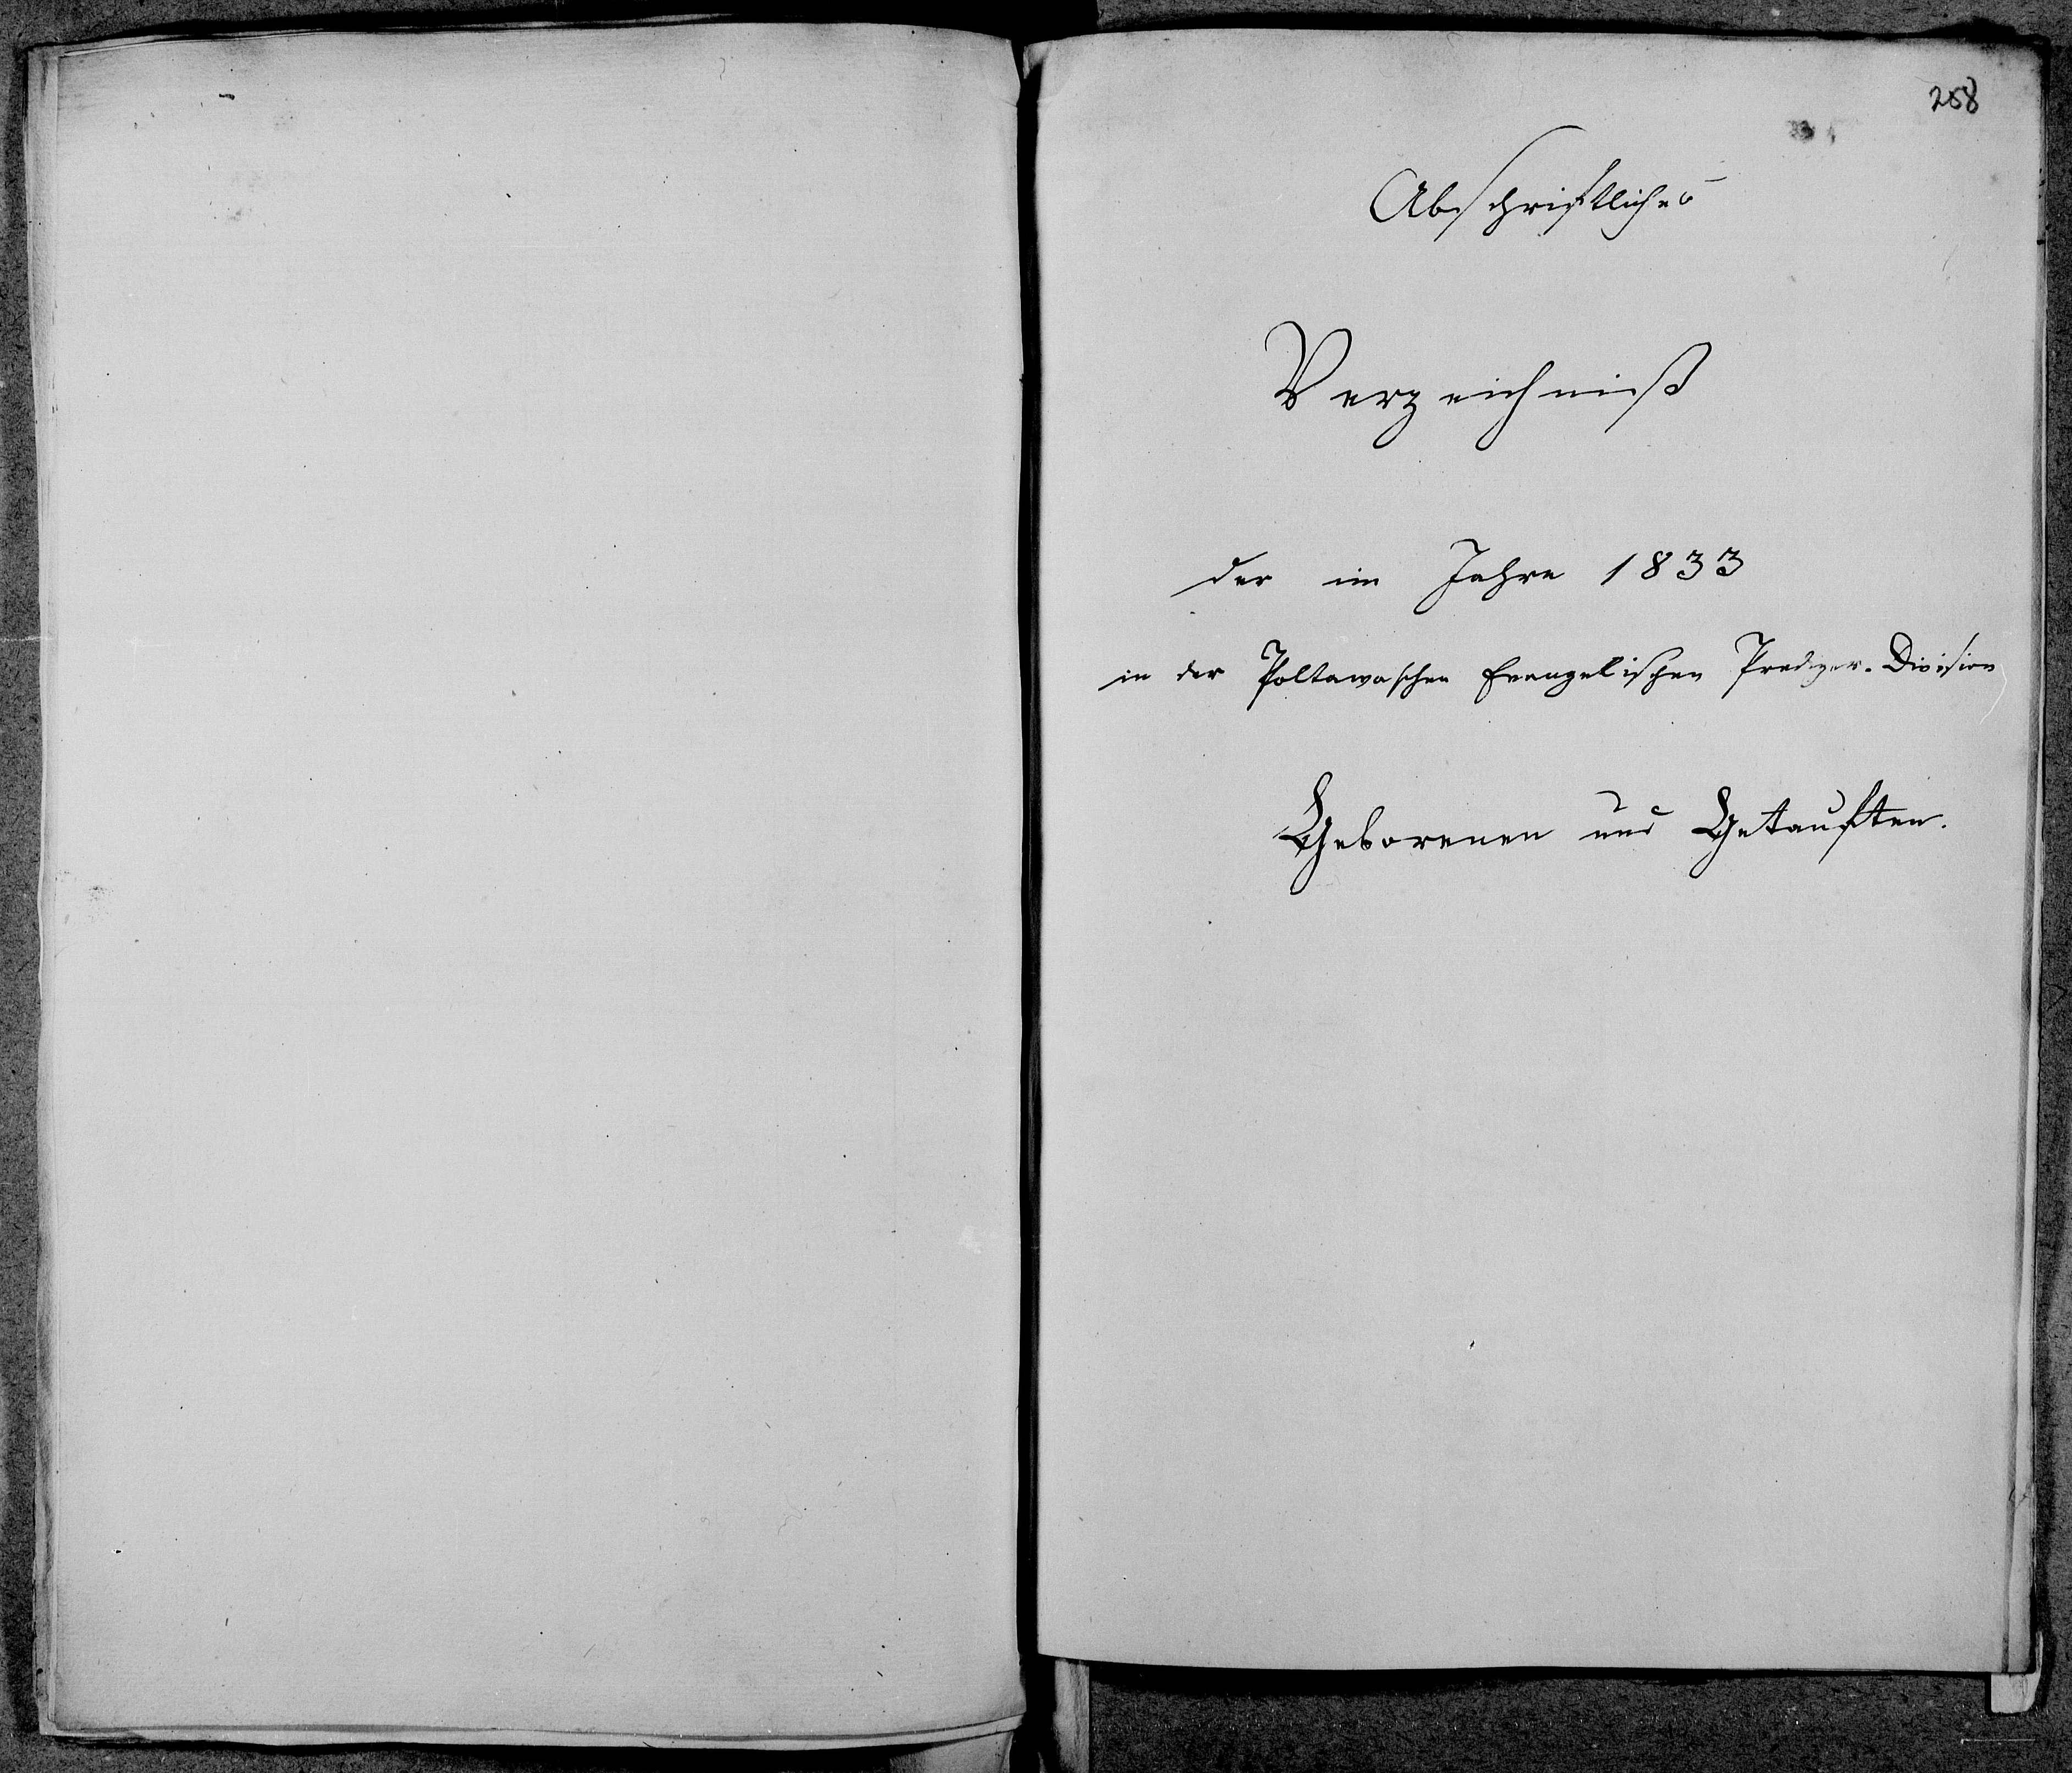 258
Abschriftliches
Verzeichniß
der im Jahre 1833
in der Poltawaschen Evangelischen Prediger-Division
Geborenen und Getauften.